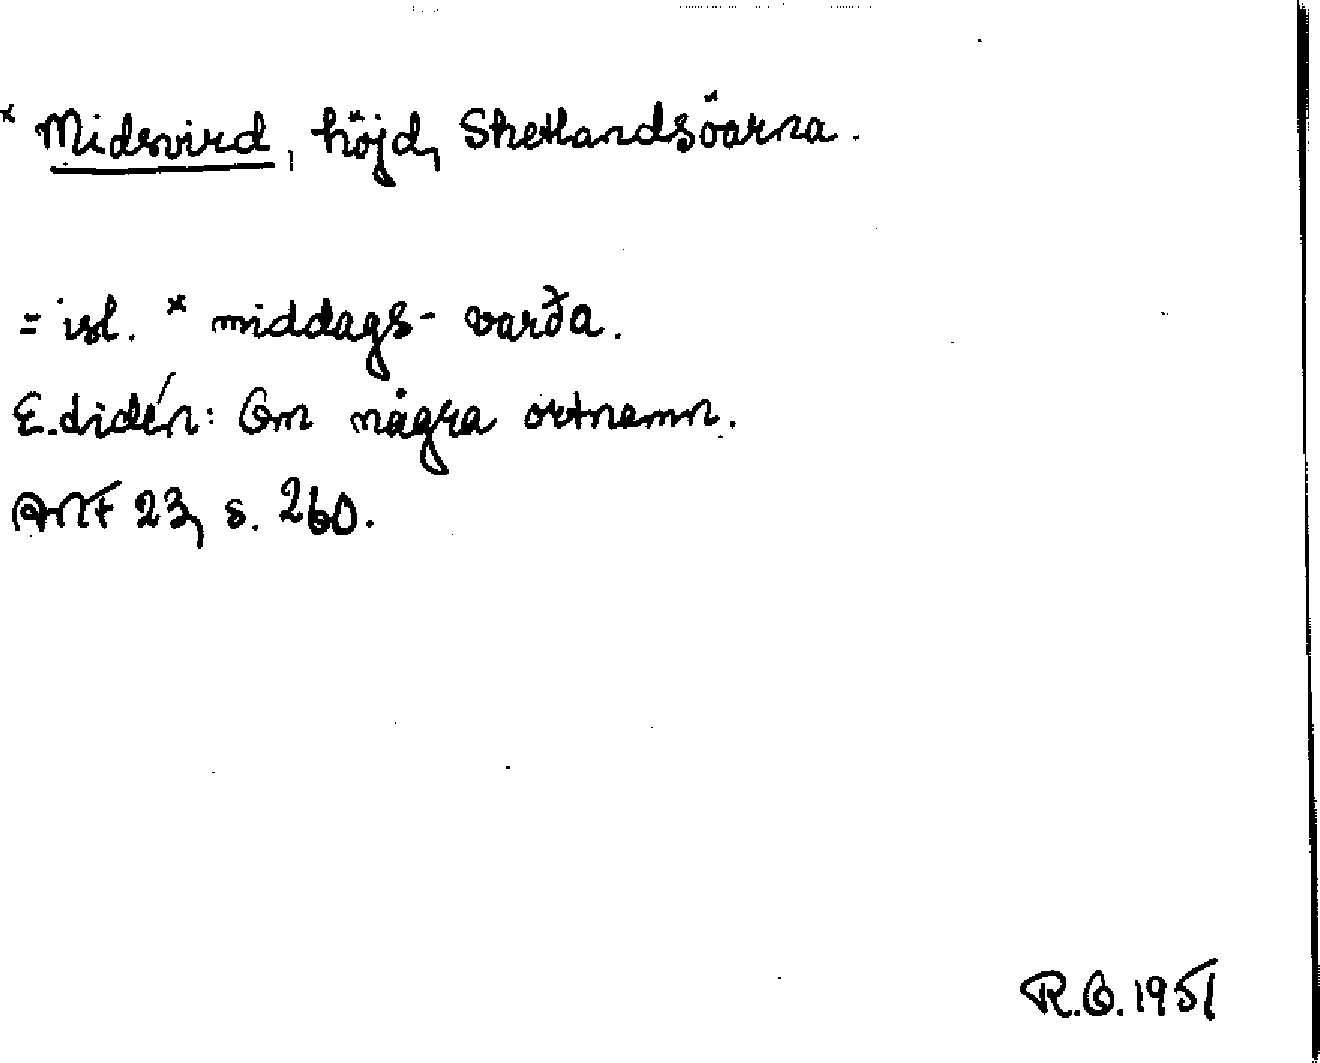 * Midsvird, höjd, Shetlandsöarna.
= isl. * middags-varða.
E. Lidén: Om några ortnamn.
ANF 23, s. 260.
R.O. 1951